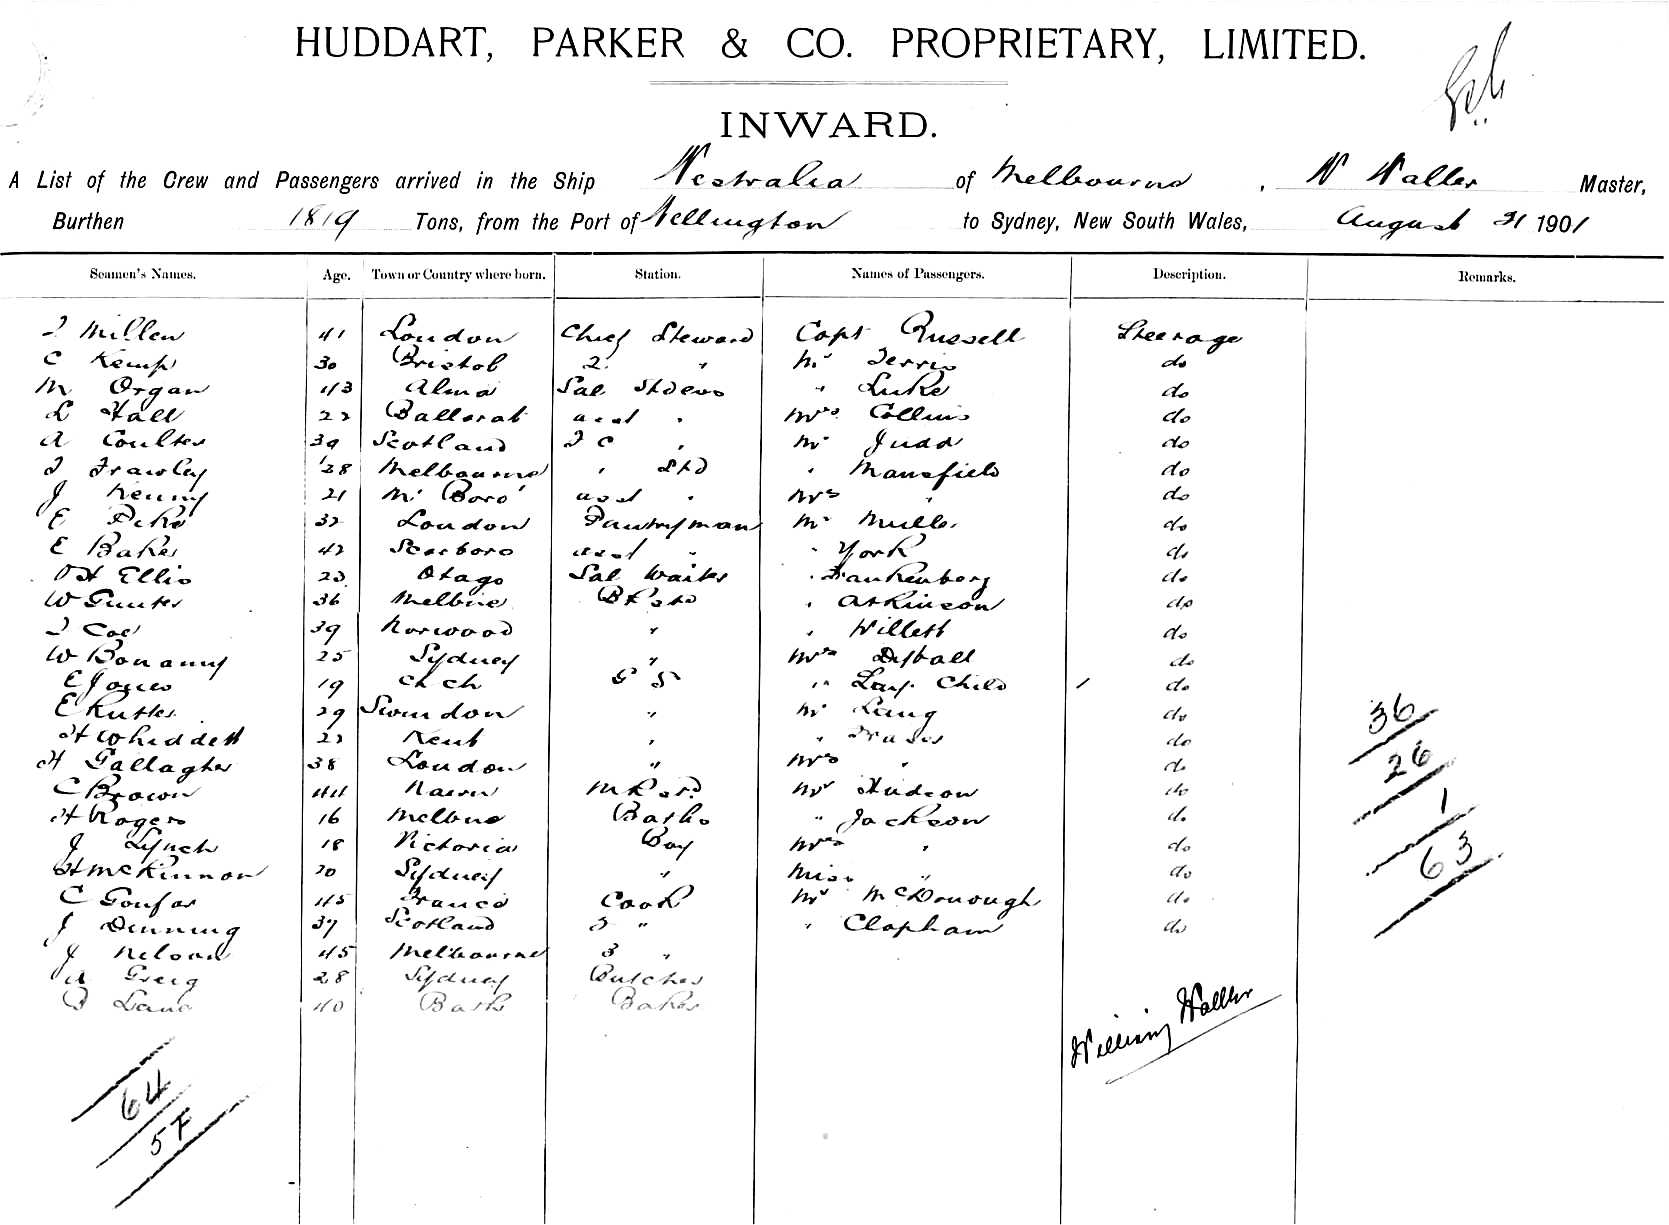 HUDDART, PARKER & CO. PROPRIETARY, LIMITED.
INWARD.
A List of the Crew and Passengers arrived in the Ship Westralia of Melbourne, W Waller Master,
Burthen 1819 Tons, from the Port of Wellington to Sydney, New South Wales, August 31 1901
Seamen's Names. Age. Town or Country where born. Station. Names of Passengers. Description. Remarks.
Millen 41 London Chief Steward Capt Russell Steerage
C Kemp 30 Bristol 2. " Mr do
M Organ 43 Alma Sal Mr Luke do
L Hall 22 Ballarat asst " Mrs Collins do
A Coulter 39 Scotland " Mr Judd do
Frawley 28 Melbourne " Std " Mansfield do
J Kenny 21 asst " Mrs " do
E Pike 32 London Pantryman Mr do
E Baker 42 Scarboro asst " " York do
Ellis 23 Otago Sal Waiter " Frankenberg do
W Gunter 36 Melbne " Atkinson do
Coe 39 Norwood " " Willett do
W Bonanny 25 Sydney " Mrs Dyball do
E Jones 19 Ch ch " Child 1 do
E Rutter 29 Swindon " Mr Lang do
H Whiddett 22 Kent " " do
H Gallagher 38 London " Mrs " do
C Brown 44 Mr Hudson do
H Rogers 16 Melbne Baths " Jackson do
J Lynch 18 Victoria Boy Mrs " do
H McKinnon 20 Sydney " Miss " do
C 45 France Cook Mr McDonough do
J Dinning 37 Scotland 2 " " Clapham do
J Nelson 45 Melbourne 3 "
A Greig 28 Sydney Butcher
Lane 40 Bath Baker
36
26
1
63
William Waller
64
57